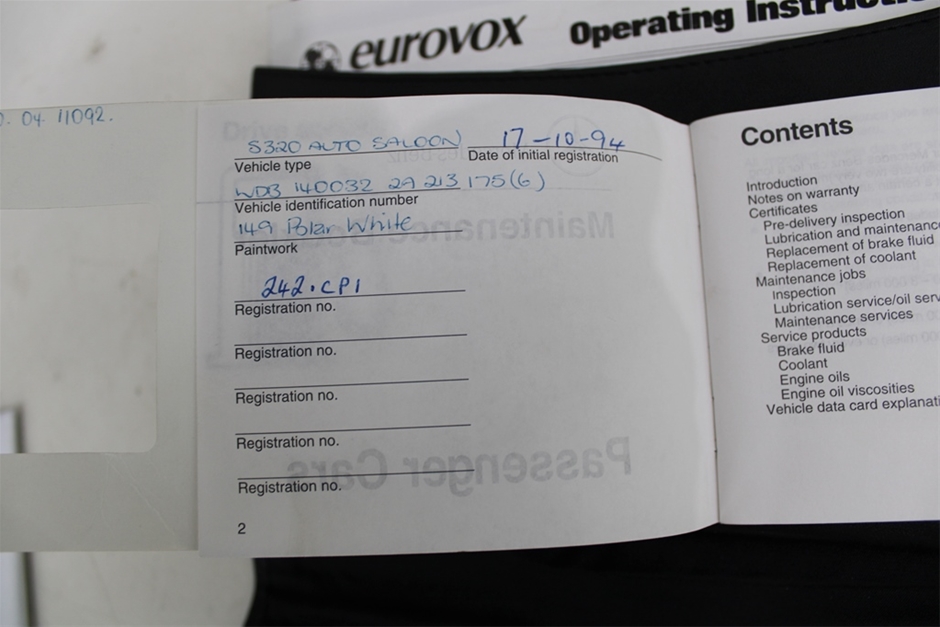 eurovox Operating Instructio
0. 04 11092.
S320 AUTO SALOON 17-10-94
Vehicle type Date of initial registration
WDB 140032 2A 213 175(6)
Vehicle identification number
149 Polar White
Paintwork
242.CP1
Registration no.
Registration no.
Registration no.
Registration no.
Registration no.
2
Maintenance
Passenger Cars
Contents
Introduction
Notes on warranty
Certificates
Pre-delivery inspection
Lubrication and maintenance
Replacement of brake fluid
Replacement of coolant
Maintenance jobs
Inspection
Lubrication service/oil serv
Maintenance services
Service products
Brake fluid
Coolant
Engine oils
Engine oil viscosities
Vehicle data card explanati